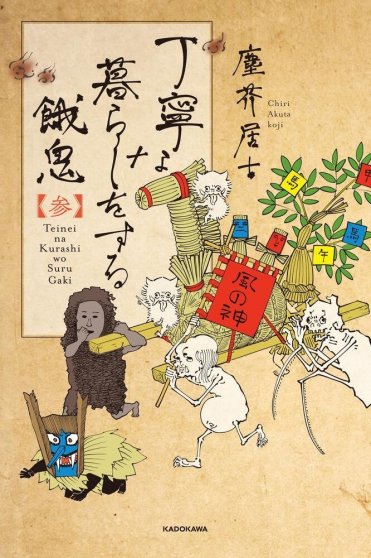 塵芥居士
Chiri
Akuta
koji
丁寧な
暮らしをする
餓鬼
【参】
Teinei
na
Kurashi
wo
Suru
Gaki
風の神
馬
甲
馬
午
KADOKAWA